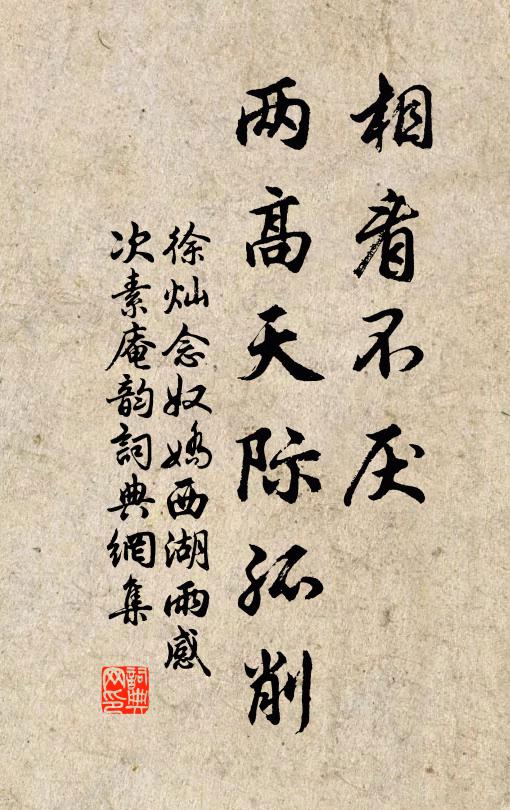 相看不厌
两高天际孤削
徐灿念奴娇西湖雨感
次素庵韵詞典網集
詞典网印